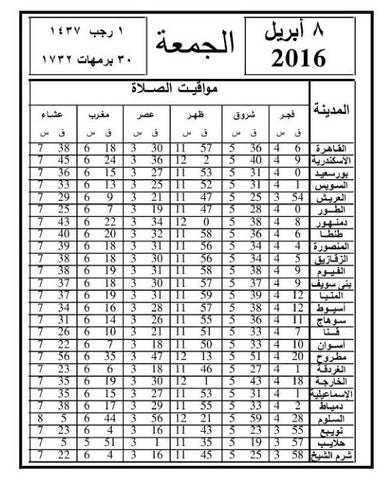 ٨ أبريل
2016
الجمعة
١ رجب ١٤٣٧
٣٠ برمهات ١٧٣٢
مواقيت الصلاة
المدينة فجر شروق ظهر عصر مغرب عشاء
ق س ق س ق س ق س ق س ق س
القاهرة 6 4 36 5 57 11 30 3 18 6 38 7
الاسكندرية 9 4 40 5 2 12 36 3 24 6 45 7
بورسعيد 0 4 31 5 53 11 27 3 15 6 36 7
السويس 1 4 31 5 52 11 25 3 13 6 33 7
العريش 54 3 25 5 47 11 21 3 9 6 29 7
الطور 0 4 28 5 47 11 19 3 7 6 25 7
دمنهور 8 4 38 5 0 12 34 3 22 6 43 7
طنطا 6 4 36 5 58 11 32 3 20 6 40 7
المنصورة 4 4 34 5 56 11 31 3 18 6 39 7
الزقازيق 5 4 34 5 56 11 30 3 18 6 38 7
الفيوم 9 4 38 5 58 11 31 3 19 6 38 7
بنى سويف 9 4 37 5 57 11 30 3 18 6 37 7
المنيا 12 4 39 5 59 11 31 3 19 6 37 7
أسيوط 12 4 38 5 57 11 28 3 16 6 34 7
سوهاج 11 4 36 5 55 11 26 3 14 6 31 7
قنا 7 4 33 5 51 11 21 3 10 6 26 7
أسوان 10 4 33 5 50 11 18 3 7 6 22 7
مطروح 20 4 51 5 13 12 47 3 35 6 56 7
الغردقة 1 4 27 5 46 11 18 3 6 6 23 7
الخارجة 18 4 43 5 1 12 30 3 19 6 35 7
الاسماعيلية 1 4 31 5 53 11 27 3 15 6 35 7
دمياط 2 4 33 5 55 11 29 3 17 6 38 7
السلوم 28 4 59 5 21 12 56 3 44 6 5 8
نويبع 55 3 23 5 45 11 16 3 4 6 23 7
حلايب 57 3 19 5 35 11 1 3 51 5 5 7
شرم الشيخ 58 3 25 5 45 11 16 3 4 6 22 7